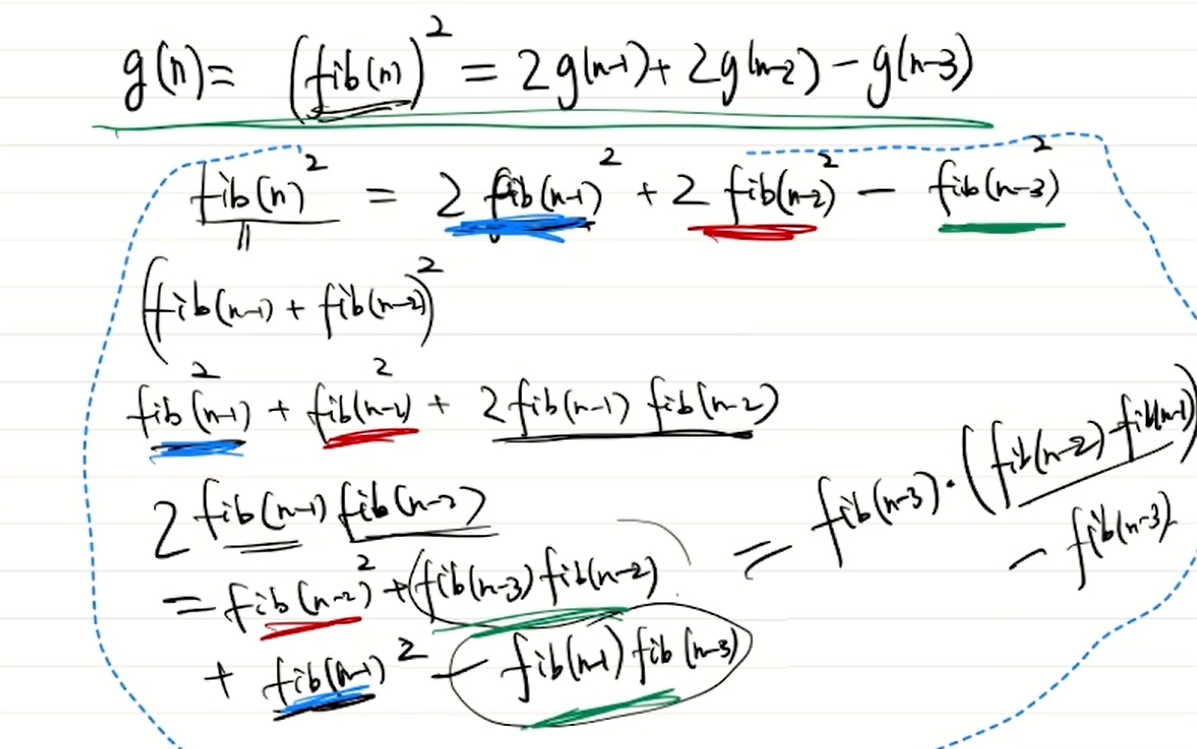 g(n) = (fib(n))² = 2g(n-1) + 2g(n-2) - g(n-3)
fib(n)² = 2 fib(n-1)² + 2 fib(n-2)² - fib(n-3)²
॥
(fib(n-1) + fib(n-2))²
fib(n-1)² + fib(n-2)² + 2 fib(n-1) fib(n-2)
2 fib(n-1) fib(n-2)
= fib(n-2)² + (fib(n-3) fib(n-2)
+ fib(n-1)² - fib(n-1) fib(n-3)
= fib(n-3) · (fib(n-2) - fib(n-1))
- fib(n-3)